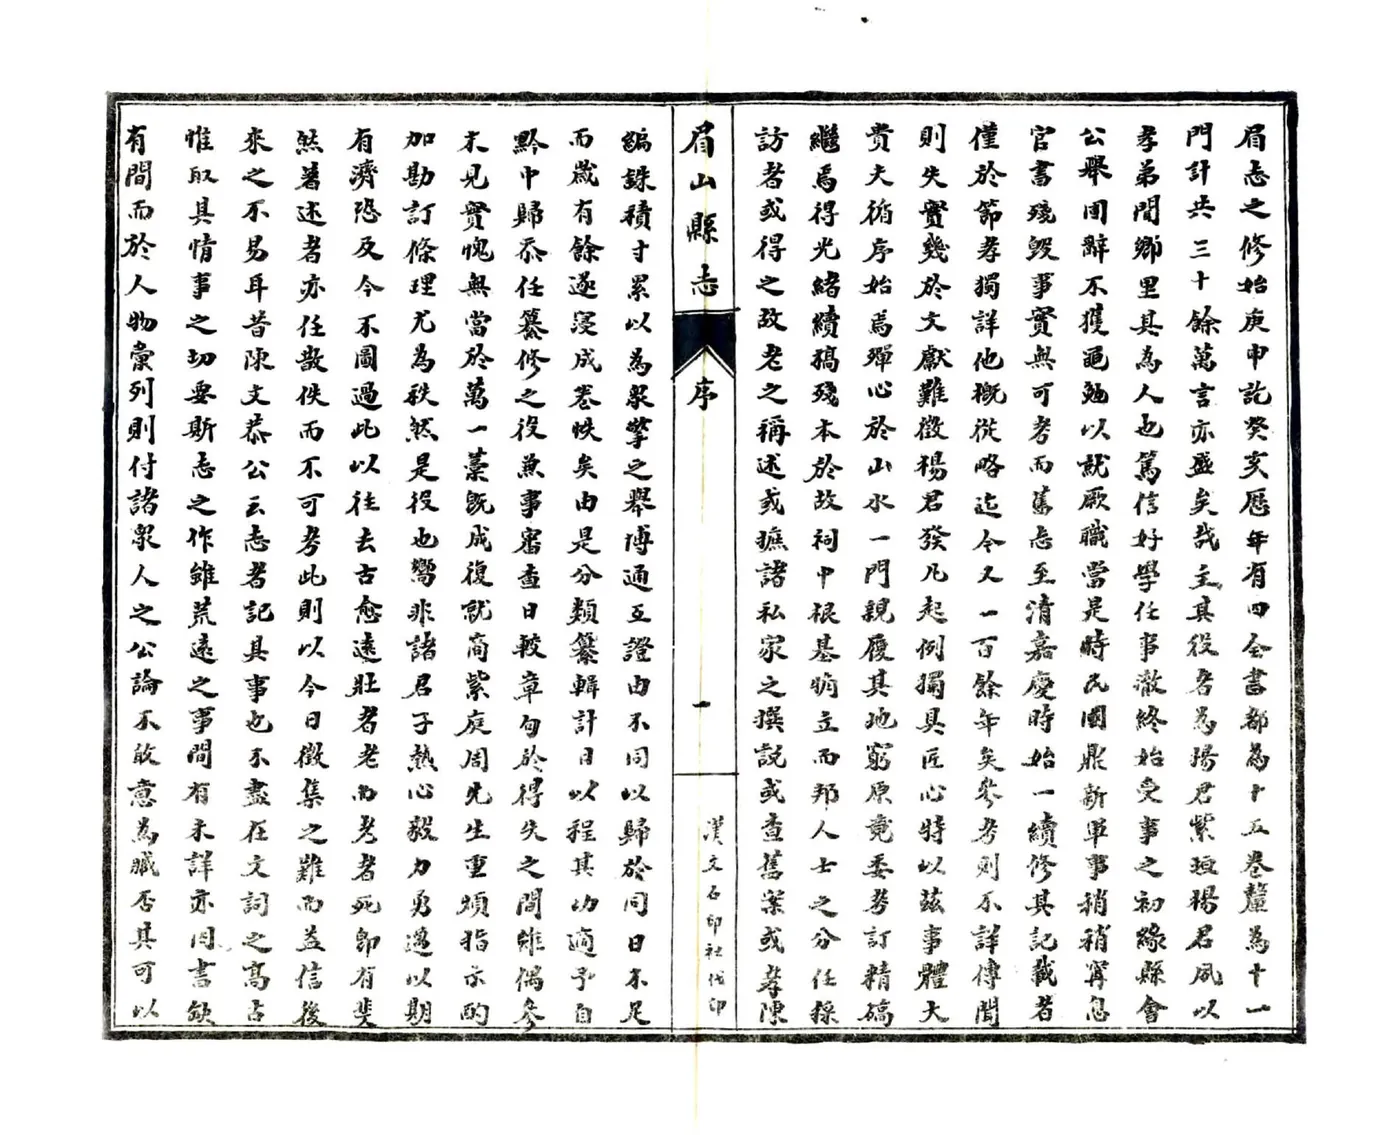 眉志之修始庚申訖癸亥歷年有四全書都為十五卷釐為十一
門計共三十餘萬言亦盛矣哉主其役者為楊君紫垣楊君夙以
孝弟聞鄉里其為人也篤信好學任事澈終始受事之初緣縣會
公舉固辭不獲黽勉以就厥職當是時民國鼎新軍事稍稍寧息
官書殘毀事實無可考而舊志至清嘉慶時始一續修其記載者
僅於節孝獨詳他概從略迄今又一百餘年矣參考則不詳傳聞
則失實幾於文獻難徵楊君發凡起例獨具匠心特以茲事體大
貴夫循序始焉殫心於山水一門親履其地窮原竟委考訂精碻
繼焉得光緒續稿殘本於故祠中根基斾立而邦人士之分任採
訪者或得之故老之稱述或摭諸私家之撰說或查舊案或孝陳
眉山縣志
序
一
漢文石印社代印
編銖積寸累以為眾擎之舉博通互證由不同以歸於同日不足
而歲有餘遂寖成卷帙矣由是分類纂輯計日以程其功適予自
黔中歸忝任纂修之役兼事審查日較章句於得失之間雖偶參
末見實愧無當於萬一藁既成復就商紫庭周先生重煩指示酌
加勘訂條理尤為秩然是役也嚮非諸君子熱心毅力勇邁以期
有濟恐及今不圖過此以往去古愈遠壯者老而老者死即有斐
然著述者亦任散佚而不可考此則以今日徵集之難而益信後
來之不易耳昔陳文恭公云志者記其事也不盡在文詞之高古
惟取具情事之切要斯志之作雖荒遠之事間有未詳亦同書缺
有間而於人物彙列則付諸眾人之公論不敢意為臧否其可以